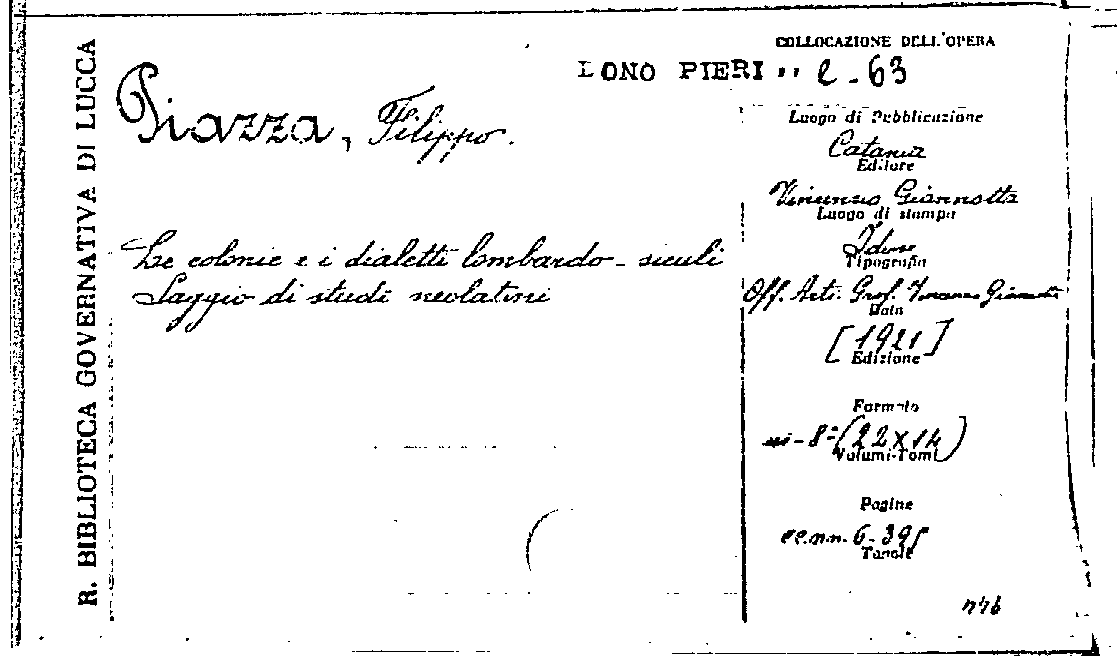 R. BIBLIOTECA GOVERNATIVA DI LUCCA
COLLOCAZIONE DELL'OPERA
DONO PIERI " e - 63
Piazza, Filippo.
Le colonie e i dialetti lombardo - siculi
Saggio di studi neolatini
Luogo di Pubblicazione
Catania
Editore
Vincenzo Giannotta
Luogo di stampa
Idem
Tipografia
Off. Arti. Graf. Vincenzo Giannotta
Data
[1921]
Edizione
Formato
in - 8° (22 x 14)
Volumi-Tomi
Pagine
cc.n.n. 6 - 395
Tavole